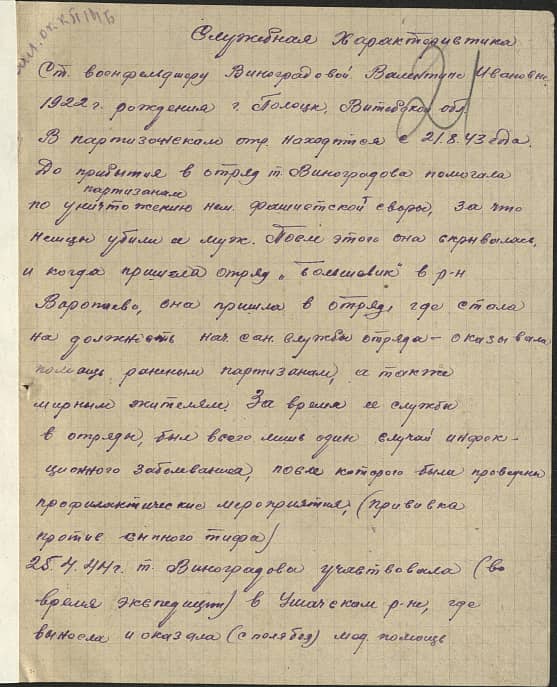 Служебная Характеристика
Ст. военфельдшеру Виноградовой Валентине Ивановне
1922 г. рождения г. Полоцк, Витебской обл.
В партизанском отр. находится с 21.8.43 года.
До прибытия в отряд т. Виноградова помогала
партизанам
по уничтожению нем. фашистской своры, за что
немцы убили а муж. После этого она скрывалась,
и когда пришел отряд „Большевик" в р-н
Воропаево, она пришла в отряд, где стала
на должность нач. сан. службы отряда – оказывала
помощь раненым партизанам, а также
мирным жителям. За время ее службы
в отряды, был всего лишь один случай инфек-
ционного заболевания, после которого были проверены
профилактические мероприятия, (прививка
против сыпного тифа)
25.4.44 г. т. Виноградова участвовала (во
время экспедиции) в Ушачском р-не, где
вынесла и оказала (с поля боя) мед. помощь